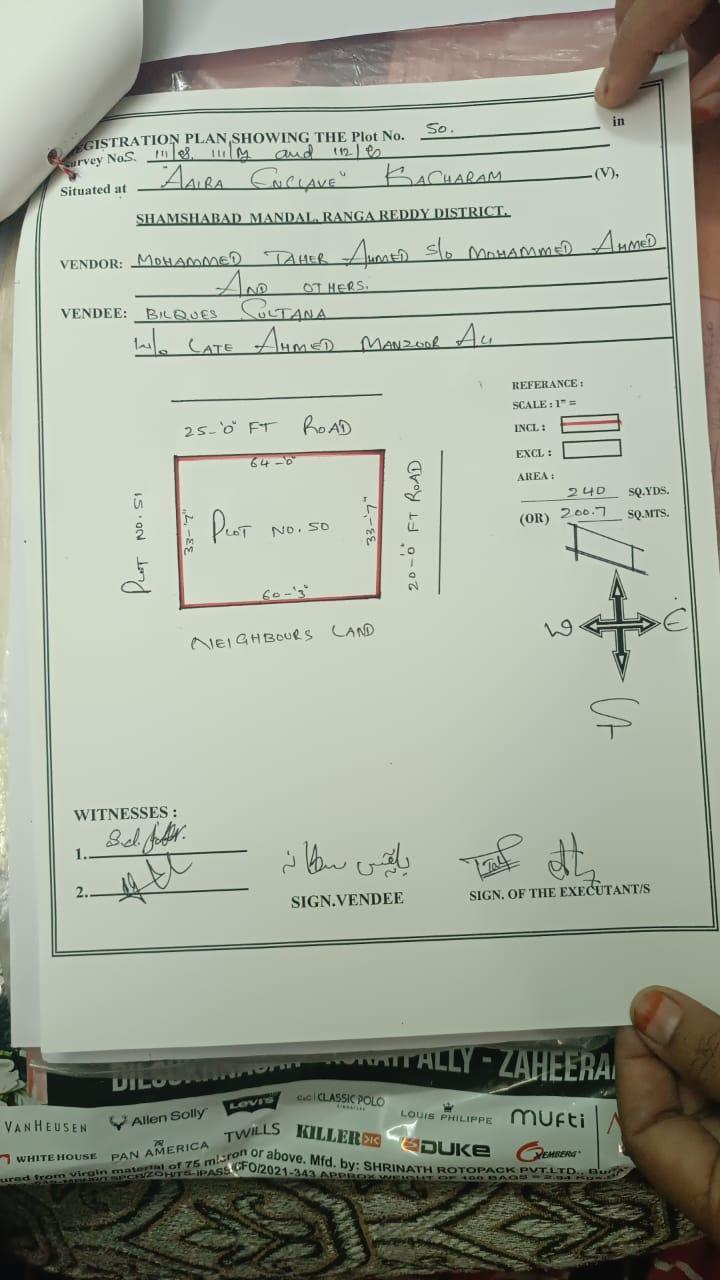 REGISTRATION PLAN SHOWING THE Plot No. 50. in
Survey NoS. and
Situated at "AAIRA ENCLAVE" KACHARAM (V),
SHAMSHABAD MANDAL, RANGA REDDY DISTRICT.
VENDOR: MOHAMMED TAHER AHMED S/o MOHAMMED AHMED
AND OTHERS.
VENDEE: BILQUES SULTANA
W/o LATE AHMED MANZOOR ALI
REFERANCE :
SCALE : 1" =
INCL :
EXCL :
AREA :
240 SQ.YDS.
(OR) 200.7 SQ.MTS.
25-'0" FT ROAD
64-'0"
PLOT NO. 51
33-'7"
PLOT NO. 50
33-'7"
20-'0" FT ROAD
60-'3"
NEIGHBOURS LAND
W E
S
WITNESSES :
1.
2.
بلقیس سلطانہ
SIGN.VENDEE
SIGN. OF THE EXECUTANT/S
PALLY - ZAHEERA
VAN HEUSEN Allen Solly LEVI'S CLASSIC POLO LOUIS PHILIPPE MUFTI
WHITE HOUSE PAN AMERICA TWILLS KILLER DUKE
ured from virgin material of 75 micron or above. Mfd. by: SHRINATH ROTOPACK PVT.LTD.,